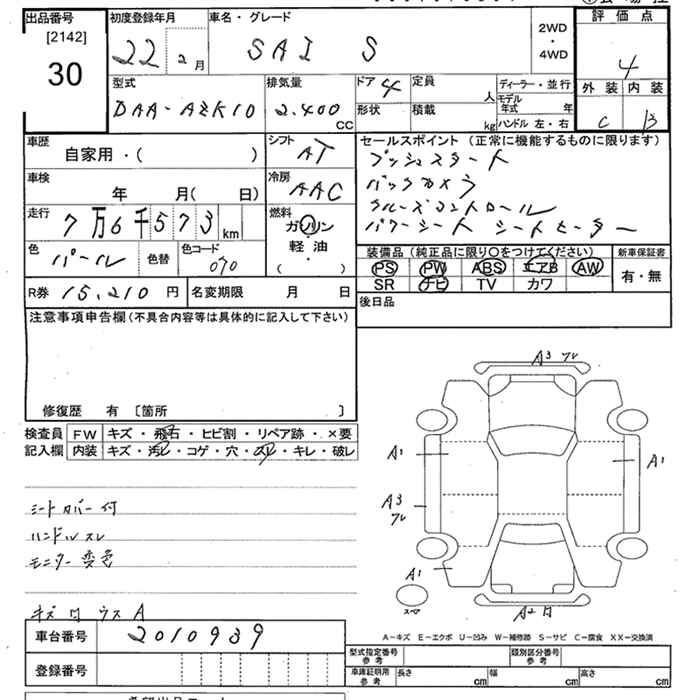 出品番号
[2142]
30
初度登録年月
22 2月
車名・グレード
SAI S
2WD
・
4WD
評価点
4
外装 内装
C B
型式
DAA-AZK10
排気量
2.400
CC
ドア 4
形状
定員
人
積載
kg
ディーラー・並行
モデル年式 年
ハンドル 左・右
車歴
自家用・( )
シフト
AT
セールスポイント(正常に機能するものに限ります)
プッシュスタート
バックカメラ
クルーズコントロール
パワーシート シートヒーター
車検
年 月( 日)
冷房
AAC
走行
7万6千573km
燃料
ガソリン
軽油
( ・ )
色
パール
色替
色コード
070
装備品(純正品に限り〇をつけてください)
PS PW ABS エアB AW
SR ナビ TV カワ
新車保証書
有・無
R券 15,210 円
名変期限 月 日
後日品
注意事項申告欄(不具合内容等は具体的に記入して下さい)
修復歴 有 〔箇所 〕
検査員
記入欄
FW キズ・飛石・ヒビ割・リペア跡・×要
内装 キズ・汚レ・コゲ・穴・スレ・キレ・破レ
シートカバー付
ハンドルスレ
モニター変色
A3 ワレ
A1
A1
A3
ワレ
A1
スペア
車台番号
2010939
登録番号
A-キズ E-エクボ U-凹み W-補修跡 S-サビ C-腐食 XX-交換済
型式指定番号
参考
類別区分番号
参考
車庫証明用
参考
長さ cm
幅 cm
高さ cm